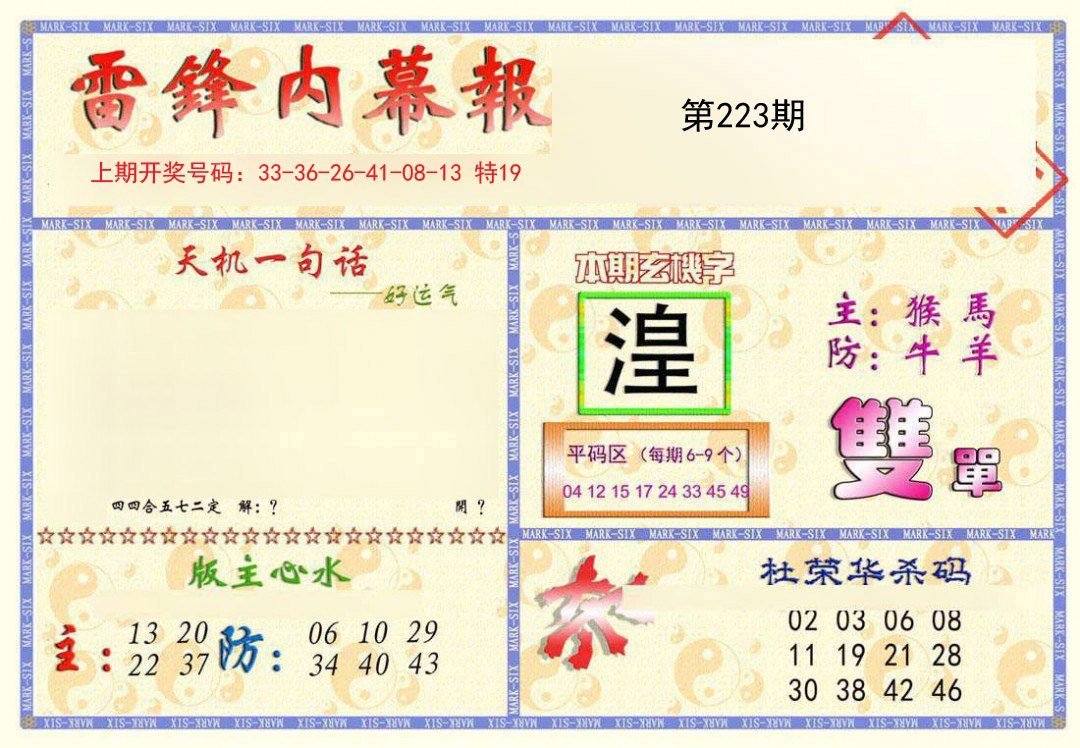 MARK-SIX MARK-SIX MARK-SIX MARK-SIX MARK-SIX MARK-SIX MARK-SIX MARK-SIX MARK-SIX MARK-SIX MARK-SIX MARK-SIX MARK-SIX MARK-SIX MARK-SIX MARK-SIX
雷鋒内幕報
第223期
上期开奖号码：33-36-26-41-08-13 特19
天机一句话
——好运气
四四合五七二定 解：？ 開？
本期玄機字
湟
主：猴 馬
防：牛 羊
雙 單
平码区（每期6-9个）
04 12 15 17 24 33 45 49
版主心水
主： 13 20 22 37
防： 06 10 29 34 40 43
杜荣华杀码
02 03 06 08
11 19 21 28
30 38 42 46